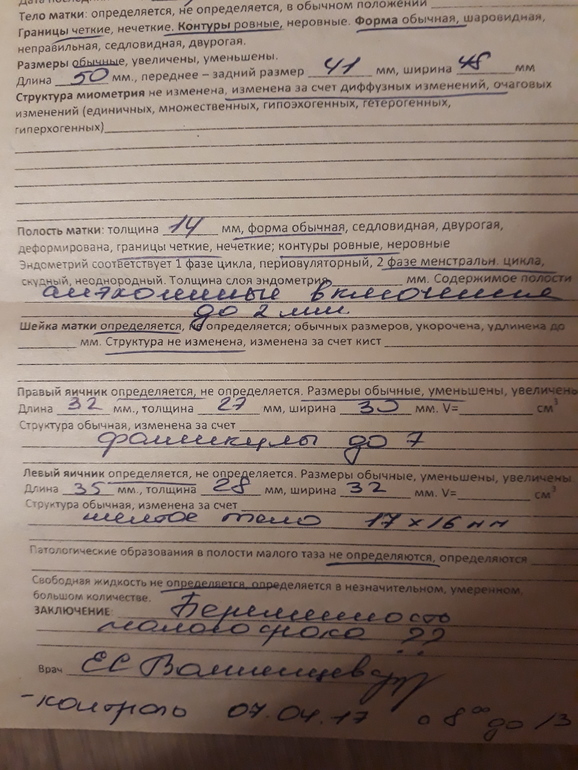 Тело матки: определяется, не определяется, в обычном положении
Границы четкие, нечеткие. Контуры ровные, неровные. Форма обычная, шаровидная,
неправильная, седловидная, двурогая.
Размеры обычные, увеличены, уменьшены.
Длина 50 мм., переднее – задний размер 41 мм, ширина 48 мм
Структура миометрия не изменена, изменена за счет диффузных изменений, очаговых
изменений (единичных, множественных, гипоэхогенных, гетерогенных,
гиперхогенных)
Полость матки: толщина 14 мм, форма обычная, седловидная, двурогая,
деформирована, границы четкие, нечеткие; контуры ровные, неровные
Эндометрий соответствует 1 фазе цикла, периовуляторный, 2 фазе менстральн. цикла,
скудный, неоднородный. Толщина слоя эндометрия мм. Содержимое полости
анэхогенные включения
до 2 мм.
Шейка матки определяется, не определяется; обычных размеров, укорочена, удлинена до
мм. Структура не изменена, изменена за счет кист
Правый яичник определяется, не определяется. Размеры обычные, уменьшены, увеличены
Длина 32 мм., толщина 27 мм, ширина 30 мм. V= см3
Структура обычная, изменена за счет
фолликулы до 7
Левый яичник определяется, не определяется. Размеры обычные, уменьшены, увеличены
Длина 35 мм., толщина 28 мм, ширина 32 мм. V= см3
Структура обычная, изменена за счет
желтое тело 17 х 16 мм
Патологические образования в полости малого таза не определяются, определяются
Свободная жидкость не определяется, определяется в незначительном, умеренном,
большом количестве.
ЗАКЛЮЧЕНИЕ: Беременность
малого срока ??
Врач ЕС
- контроль 07.04.17 с 8 00 до 13